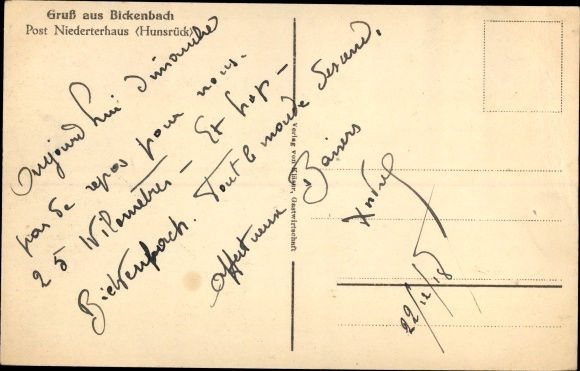 Gruß aus Bickenbach
Post Niederterhaus (Hunsrück)
Aujourd'hui dimanche
pas de repos pour nous.
25 kilomètres – Et hop –
Bickenbach. Tout le monde descend.
Affectueux Baisers
André
22/12/18